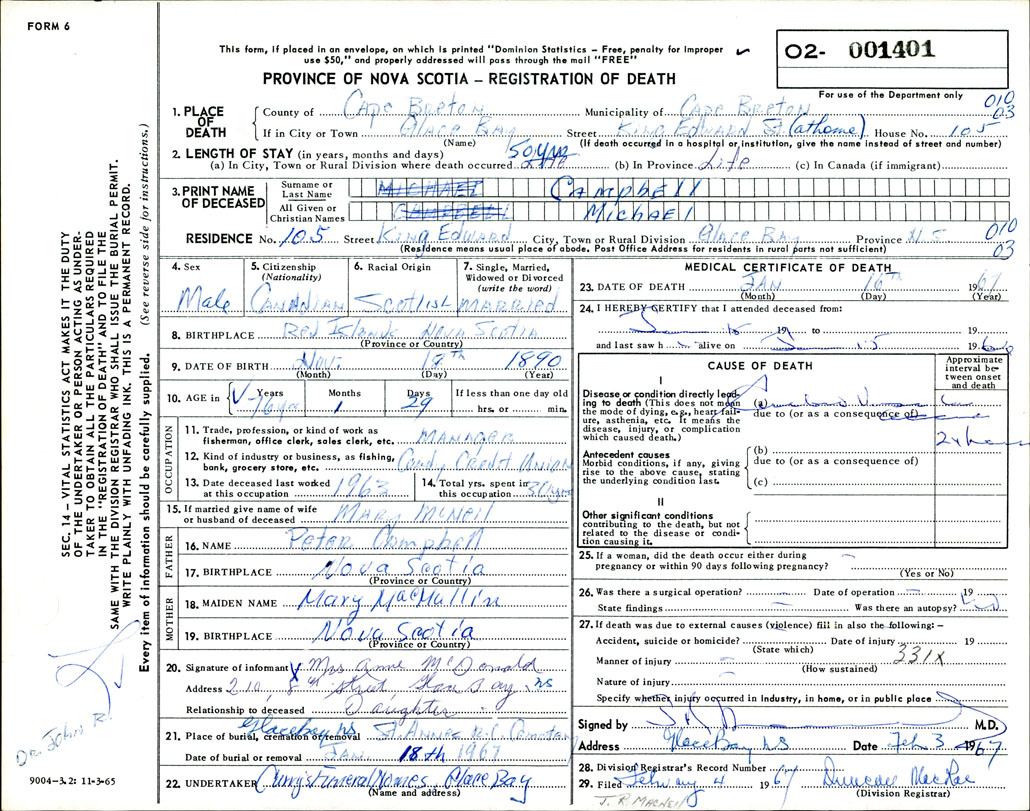 FORM 6
This form, if placed in an envelope, on which is printed "Dominion Statistics – Free, penalty for improper
use $50," and properly addressed will pass through the mail "FREE"
O2- 001401
PROVINCE OF NOVA SCOTIA – REGISTRATION OF DEATH
For use of the Department only
010
03
1. PLACE OF DEATH
County of Cape Breton Municipality of Cape Breton
If in City or Town Glace Bay Street King Edward St (at home) House No. 105
(Name) (If death occurred in a hospital or institution, give the name instead of street and number)
2. LENGTH OF STAY (in years, months and days)
(a) In City, Town or Rural Division where death occurred 50 yrs (b) In Province Life (c) In Canada (if immigrant)
3. PRINT NAME OF DECEASED
Surname or Last Name MICHAEL Campbell
All Given or Christian Names CAMPBELL Michael
RESIDENCE No. 105 Street King Edward City, Town or Rural Division Glace Bay Province N S 010
03
(Residence means usual place of abode. Post Office Address for residents in rural parts not sufficient)
4. Sex Male
5. Citizenship (Nationality) Canadian
6. Racial Origin Scotish
7. Single, Married, Widowed or Divorced (write the word) Married
8. BIRTHPLACE Red Islands Nova Scotia
(Province or Country)
9. DATE OF BIRTH Nov. 18th 1890
(Month) (Day) (Year)
10. AGE in Years 76 yrs Months 1 Days 29 If less than one day old
hrs. or min.
OCCUPATION
11. Trade, profession, or kind of work as
fisherman, office clerk, sales clerk, etc. Manager
12. Kind of industry or business, as fishing,
bank, grocery store, etc. Credit Union
13. Date deceased last worked
at this occupation 1963
14. Total yrs. spent in
this occupation 30 yrs
15. If married give name of wife
or husband of deceased Mary McNeil
FATHER
16. NAME Peter Campbell
17. BIRTHPLACE Nova Scotia
(Province or Country)
MOTHER
18. MAIDEN NAME Mary MacMullin
19. BIRTHPLACE Nova Scotia
(Province or Country)
20. Signature of informant X Mrs Anne McDonald
Address 210, 8th Street, Glace Bay, NS
Relationship to deceased Daughter
21. Place of burial, cremation or removal Glace Bay NS St. Annes R.C. Cemetary
Date of burial or removal Jan 18th 1967
22. UNDERTAKER Curry's Funeral Homes Glace Bay
(Name and address)
MEDICAL CERTIFICATE OF DEATH
23. DATE OF DEATH Jan 16th 1967
(Month) (Day) (Year)
24. I HEREBY CERTIFY that I attended deceased from:
15 19 to 19
and last saw h alive on 15 19
CAUSE OF DEATH
Approximate interval between onset and death
I
Disease or condition directly lead-
ing to death (This does not mean
the mode of dying, e.g., heart fail-
ure, asthenia, etc. It means the
disease, injury, or complication
which caused death.)
(a)
due to (or as a consequence of)
Antecedent causes
Morbid conditions, if any, giving
rise to the above cause, stating
the underlying condition last.
(b)
due to (or as a consequence of)
(c)
II
Other significant conditions
contributing to the death, but not
related to the disease or condi-
tion causing it.
25. If a woman, did the death occur either during
pregnancy or within 90 days following pregnancy?
(Yes or No)
26. Was there a surgical operation? Date of operation 19
State findings Was there an autopsy?
27. If death was due to external causes (violence) fill in also the following: –
Accident, suicide or homicide? Date of injury 19
(State which) 331X
Manner of injury
(How sustained)
Nature of injury
Specify whether injury occurred in Industry, in home, or in public place
Signed by M.D.
Address Glace Bay NS Date Feb 3 1967
28. Division Registrar's Record Number
29. Filed February 4 1967 Duncan MacRae
(Division Registrar)
J. R. MacNeil
SEC. 14 – VITAL STATISTICS ACT MAKES IT THE DUTY
OF THE UNDERTAKER OR PERSON ACTING AS UNDER-
TAKER TO OBTAIN ALL THE PARTICULARS REQUIRED
IN THE "REGISTRATION OF DEATH" AND TO FILE THE
SAME WITH THE DIVISION REGISTRAR WHO SHALL ISSUE THE BURIAL PERMIT.
WRITE PLAINLY WITH UNFADING INK. THIS IS A PERMANENT RECORD.
Every item of information should be carefully supplied. (See reverse side for instructions.)
Dr. John R.
9004-3.2: 11-3-65